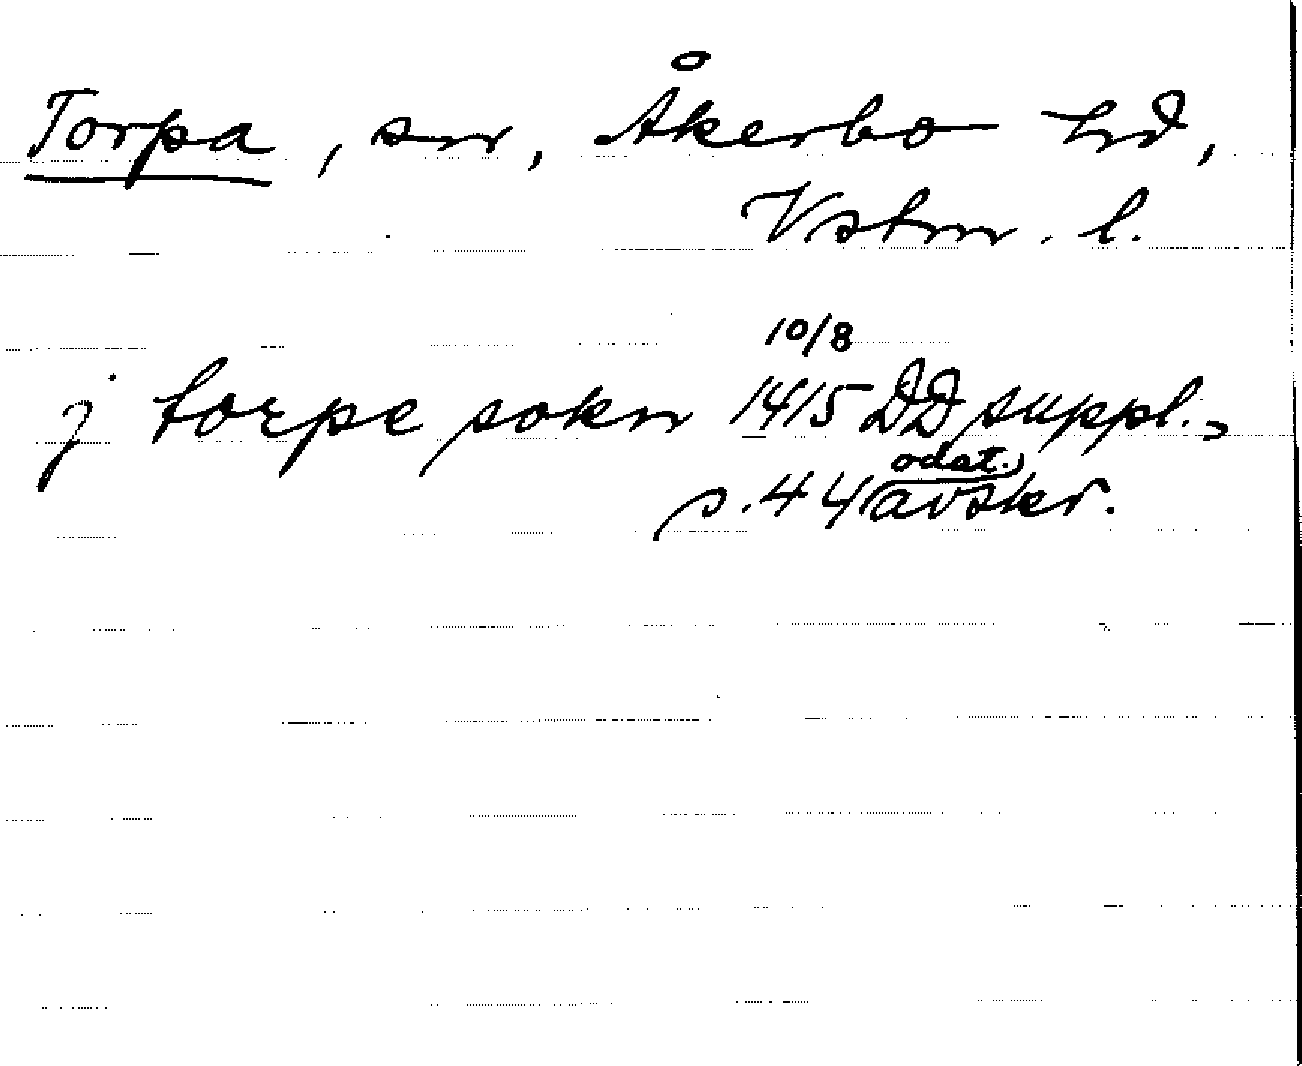 Torpa, sn, Åkerbo hd,
Vstm. l.
10/8
j torpe sokn 1415 DD suppl.,
odat.,
s. 44 avskr.